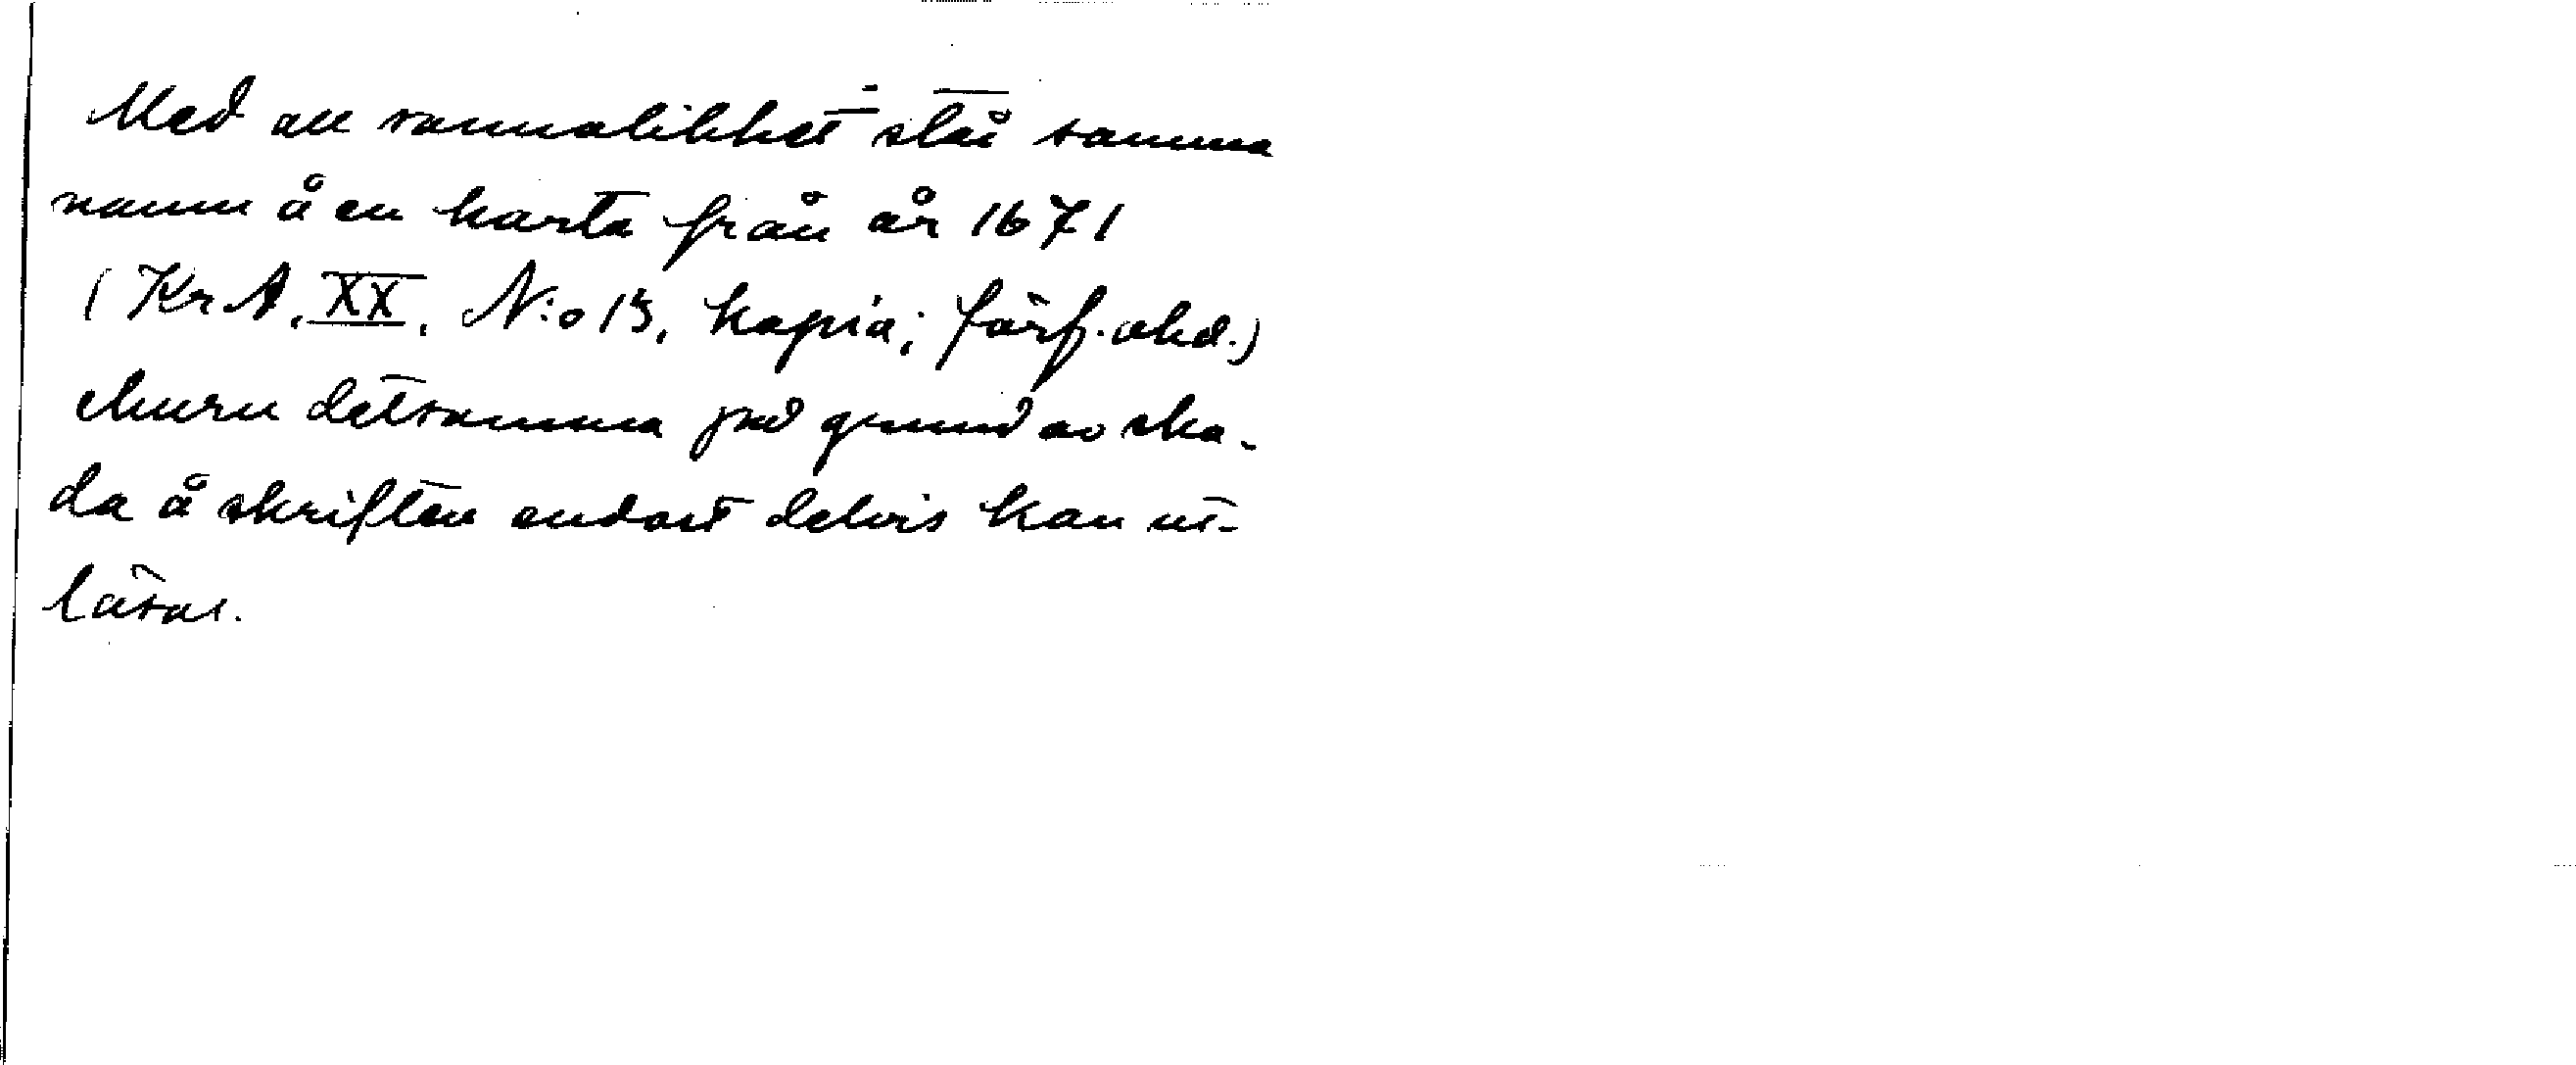 Med all sannolikhet står samma
namn å en karta från år 1671
(Kr A, XX, N:o 13, kopia; förf. okd.)
ehuru detsamma på grund av ska-
da å skriften endast delvis kan ut-
läsas.